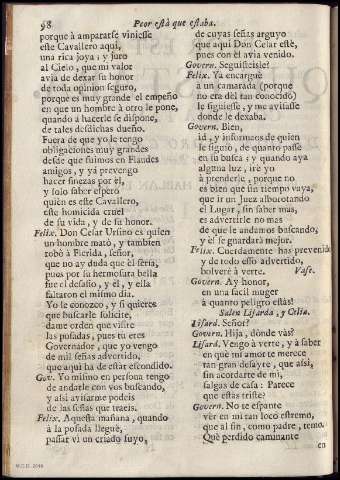 98 Peor està que estaba.
porque à ampararse viniesse
este Cavallero aqui,
una rica joya; y juro
al Cielo, que mi valor
avia de dexar su honor
de toda opinion seguro,
porque es muy grande el empeño
en que un hombre à otro le pone,
quando à hacerle se dispone,
de tales desdichas dueño.
Fuera de que yo le tengo
obligaciones muy grandes
desde que fuimos en Flandes
amigos, y yà prevengo
hacer finezas por èl,
y solo saber espero
quièn es este Cavallero,
este homicida cruel
de su vida, y de su honor.
Felix. Don Celar Ursino es quien
un hombre matò, y tambien
robò à Flerida, señor,
que no ay duda que èl seria,
pues por su hermosura bella
fue el desafio, y èl, y ella
faltaron el mismo dia.
Yo le conozco, y si quieres
que buscarle solicite,
dame orden que visite
las posadas, pues tu eres
Governador, que yo vengo
de mil señas advertido,
que aqui ha de estàr escondido.
Gov. Yo mismo en persona tengo
de andarle con vos buscando,
y assi avisarme podeis
de las señas que traeis.
Felix. Aquesta mañana, quando
à la posada lleguè,
passar vi un criado suyo,
de cuyas señas arguyo
que aqui Don Celar estè,
pues con èl avia venido.
Govern. Seguisteisle?
Felix. Ya encarguè
à un camarada (porque
no era dèl tan conocido)
le siguiesse, y me avisasse
donde le dexaba.
Govern. Bien,
id, è informaos de quien
le siguiò, de quanto passe
en su busca; y quando aya
alguna luz, ire yo
à prenderle, porque no
es bien que sin tiempo vaya,
que ir un Juez alborotando
el Lugar, sin saber mas,
es advertirle no mas
de que le andamos buscando,
y èl se guardarà mejor.
Felix. Cuerdamente has prevenido
y de todo esso advertido,
bolverè à verte. Vase.
Govern. Ay honor,
en una facil muger
à quanto peligro estàs!
Salen Lisarda, y Celia.
Lisard. Señor?
Govern. Hija, dònde vàs?
Lisard. Vengo à verte, y à saber
en què mi amor te merece
tan gran desayre, que assi,
sin acordarte de mi,
salgas de casa: Parece
que estàs triste?
Govern. No te espante
ver en mi tan loco estremo,
que al fin, como padre, temo.
Què perdido caminante
en